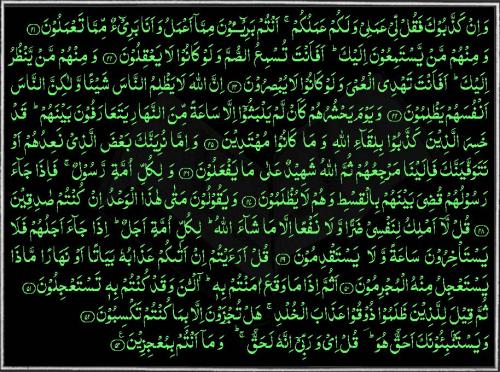 وَاِنْ كَذَّبُوْكَ فَقُلْ لِّىْ عَمَلِىْ وَلَكُمْ عَمَلُكُمْ ۚ اَنْتُمْ بَرِيْٓـُٔوْنَ مِمَّاۤ اَعْمَلُ وَاَنَا بَرِىْٓءٌ مِّمَّا تَعْمَلُوْنَ ﴿۴۱﴾
وَمِنْهُمْ مَّنْ يَّسْتَمِعُوْنَ اِلَيْكَ ؕ اَفَاَنْتَ تُسْمِعُ الصُّمَّ وَلَوْ كَانُوْا لَا يَعْقِلُوْنَ ﴿۴۲﴾ وَمِنْهُمْ مَّنْ يَّنْظُرُ
اِلَيْكَ ؕ اَفَاَنْتَ تَهْدِى الْعُمْىَ وَلَوْ كَانُوْا لَا يُبْصِرُوْنَ ﴿۴۳﴾ اِنَّ اللّٰهَ لَا يَظْلِمُ النَّاسَ شَيْـًٔا وَّلٰكِنَّ النَّاسَ
اَنْفُسَهُمْ يَظْلِمُوْنَ ﴿۴۴﴾ وَيَوْمَ يَحْشُرُهُمْ كَاَنْ لَّمْ يَلْبَثُوْۤا اِلَّا سَاعَةً مِّنَ النَّهَارِ يَتَعَارَفُوْنَ بَيْنَهُمْ ؕ قَدْ
خَسِرَ الَّذِيْنَ كَذَّبُوْا بِلِقَآءِ اللّٰهِ وَمَا كَانُوْا مُهْتَدِيْنَ ﴿۴۵﴾ وَاِمَّا نُرِيَنَّكَ بَعْضَ الَّذِىْ نَعِدُهُمْ اَوْ
نَتَوَفَّيَنَّكَ فَاِلَيْنَا مَرْجِعُهُمْ ثُمَّ اللّٰهُ شَهِيْدٌ عَلٰى مَا يَفْعَلُوْنَ ﴿۴۶﴾ وَلِكُلِّ اُمَّةٍ رَّسُوْلٌ ۚ فَاِذَا جَآءَ
رَسُوْلُهُمْ قُضِىَ بَيْنَهُمْ بِالْقِسْطِ وَهُمْ لَا يُظْلَمُوْنَ ﴿۴۷﴾ وَيَقُوْلُوْنَ مَتٰى هٰذَا الْوَعْدُ اِنْ كُنْتُمْ صٰدِقِيْنَ
﴿۴۸﴾ قُلْ لَّاۤ اَمْلِكُ لِنَفْسِىْ ضَرًّا وَّلَا نَفْعًا اِلَّا مَا شَآءَ اللّٰهُ ؕ لِكُلِّ اُمَّةٍ اَجَلٌ ؕ اِذَا جَآءَ اَجَلُهُمْ فَلَا
يَسْتَاْخِرُوْنَ سَاعَةً وَّلَا يَسْتَقْدِمُوْنَ ﴿۴۹﴾ قُلْ اَرَءَيْتُمْ اِنْ اَتٰٮكُمْ عَذَابُهٗ بَيَاتًا اَوْ نَهَارًا مَّاذَا
يَسْتَعْجِلُ مِنْهُ الْمُجْرِمُوْنَ ﴿۵۰﴾ اَثُمَّ اِذَا مَا وَقَعَ اٰمَنْتُمْ بِهٖ ؕ آٰلْئٰنَ وَقَدْ كُنْتُمْ بِهٖ تَسْتَعْجِلُوْنَ ﴿۵۱﴾
ثُمَّ قِيْلَ لِلَّذِيْنَ ظَلَمُوْا ذُوْقُوْا عَذَابَ الْخُلْدِ ۚ هَلْ تُجْزَوْنَ اِلَّا بِمَا كُنْتُمْ تَكْسِبُوْنَ ﴿۵۲﴾
وَيَسْتَنْۢبِئُوْنَكَ اَحَقٌّ هُوَ ؕ قُلْ اِىْ وَرَبِّىْۤ اِنَّهٗ لَحَقٌّ ؔؕ وَمَاۤ اَنْتُمْ بِمُعْجِزِيْنَ ﴿۵۳﴾